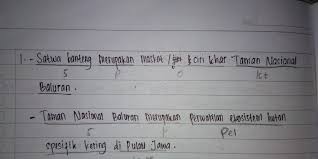 1. - Satwa banteng merupakan maskot / & ciri khar Taman Nasional
S P O Kt
Baluran.
- Taman Nasional Baluran merupakan perwakilan ekosistem hutan
S P Pel
spesifik kering di Pulau Jawa.